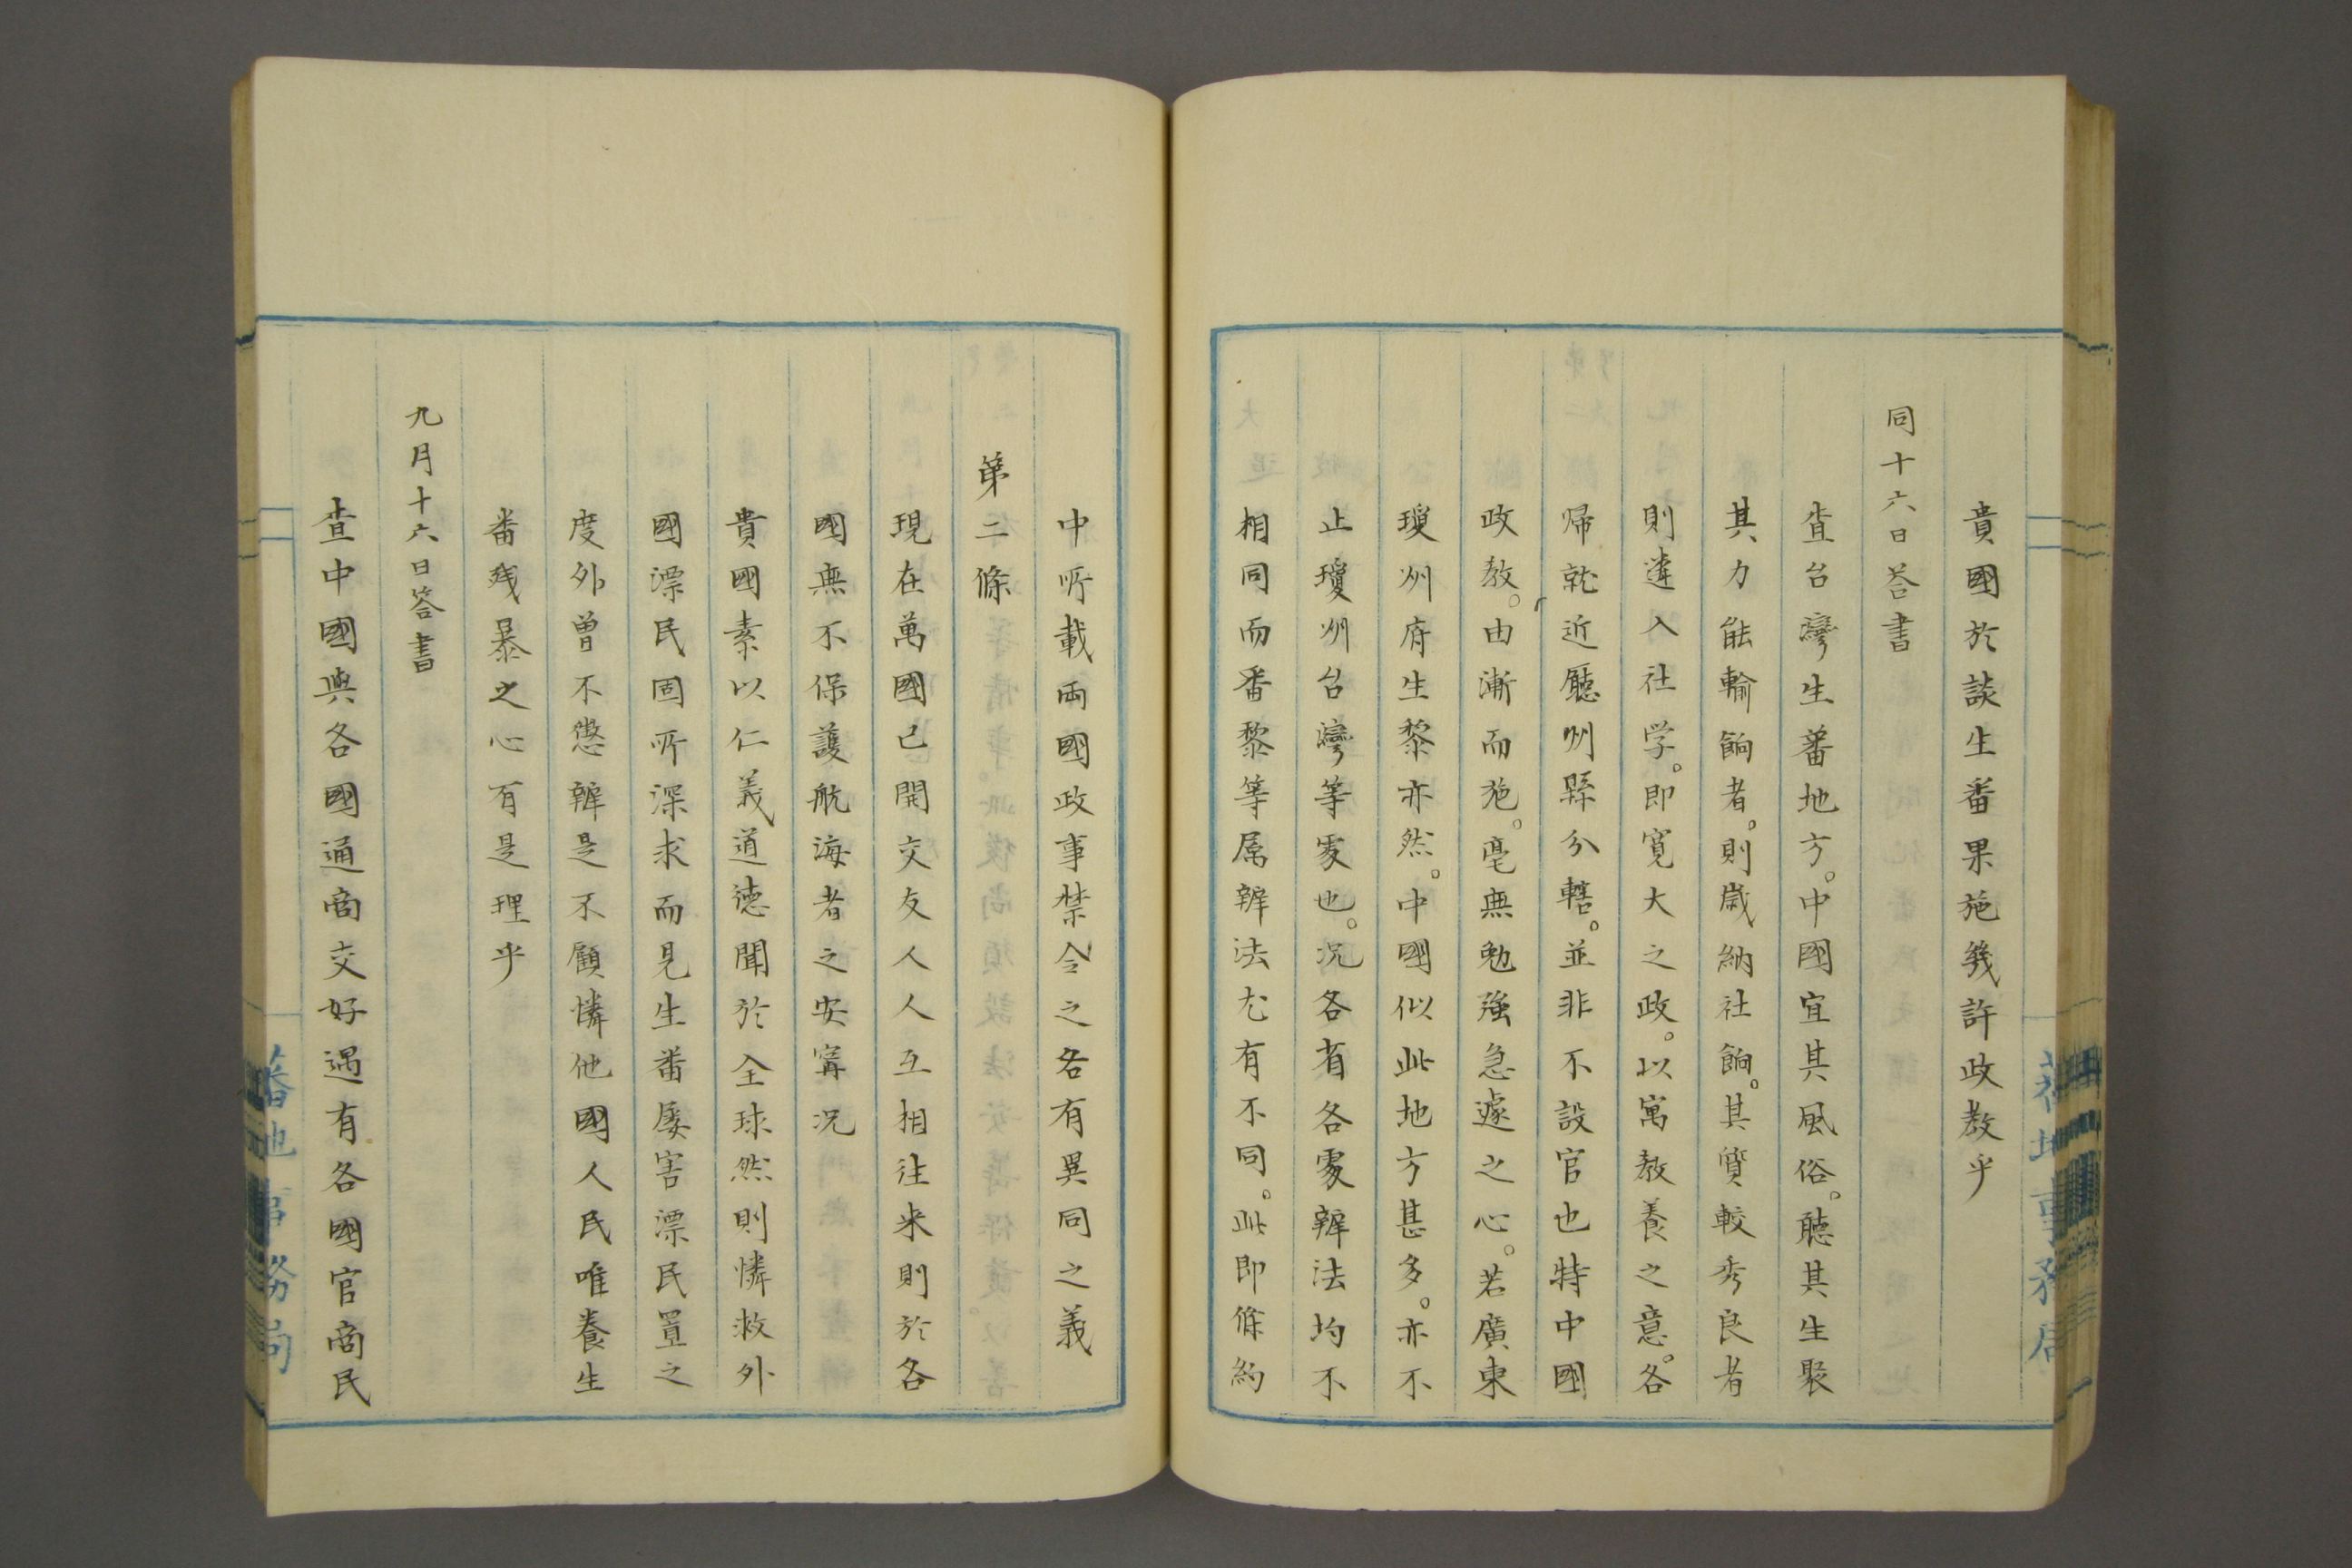 貴國於談生番果施幾許政教乎
同十六日荅書
査台灣生蕃地方。中國宜其風俗。聽其生聚
其力能輸餉者。則歳納社餉。其質較秀良者
則遴入社学。即寛大之政。以寓教養之意。各
帰就近廳州縣分轄。並非不設官也特中國
政教。由漸而施。毫無勉強急遽之心。若廣東
瓊州府生黎亦然。中國似此地方甚多。亦不
止瓊州台灣等處也。况各省各處辦法均不
相同而番黎等属辦法尤有不同。此即條約
中所載両國政事禁令之各有異同之義
第二條
現在萬國已開交友人人互相往来則於各
國無不保護航海者之安寗况
貴國素以仁義道徳聞於全球然則憐救外
國漂民固所深求而見生番屡害漂民置之
度外曽不懲辦是不顧憐他國人民唯養生
番残暴之心有是理乎
九月十六日答書
查中國與各國通商交好遇有各國官商民
蕃地事務局